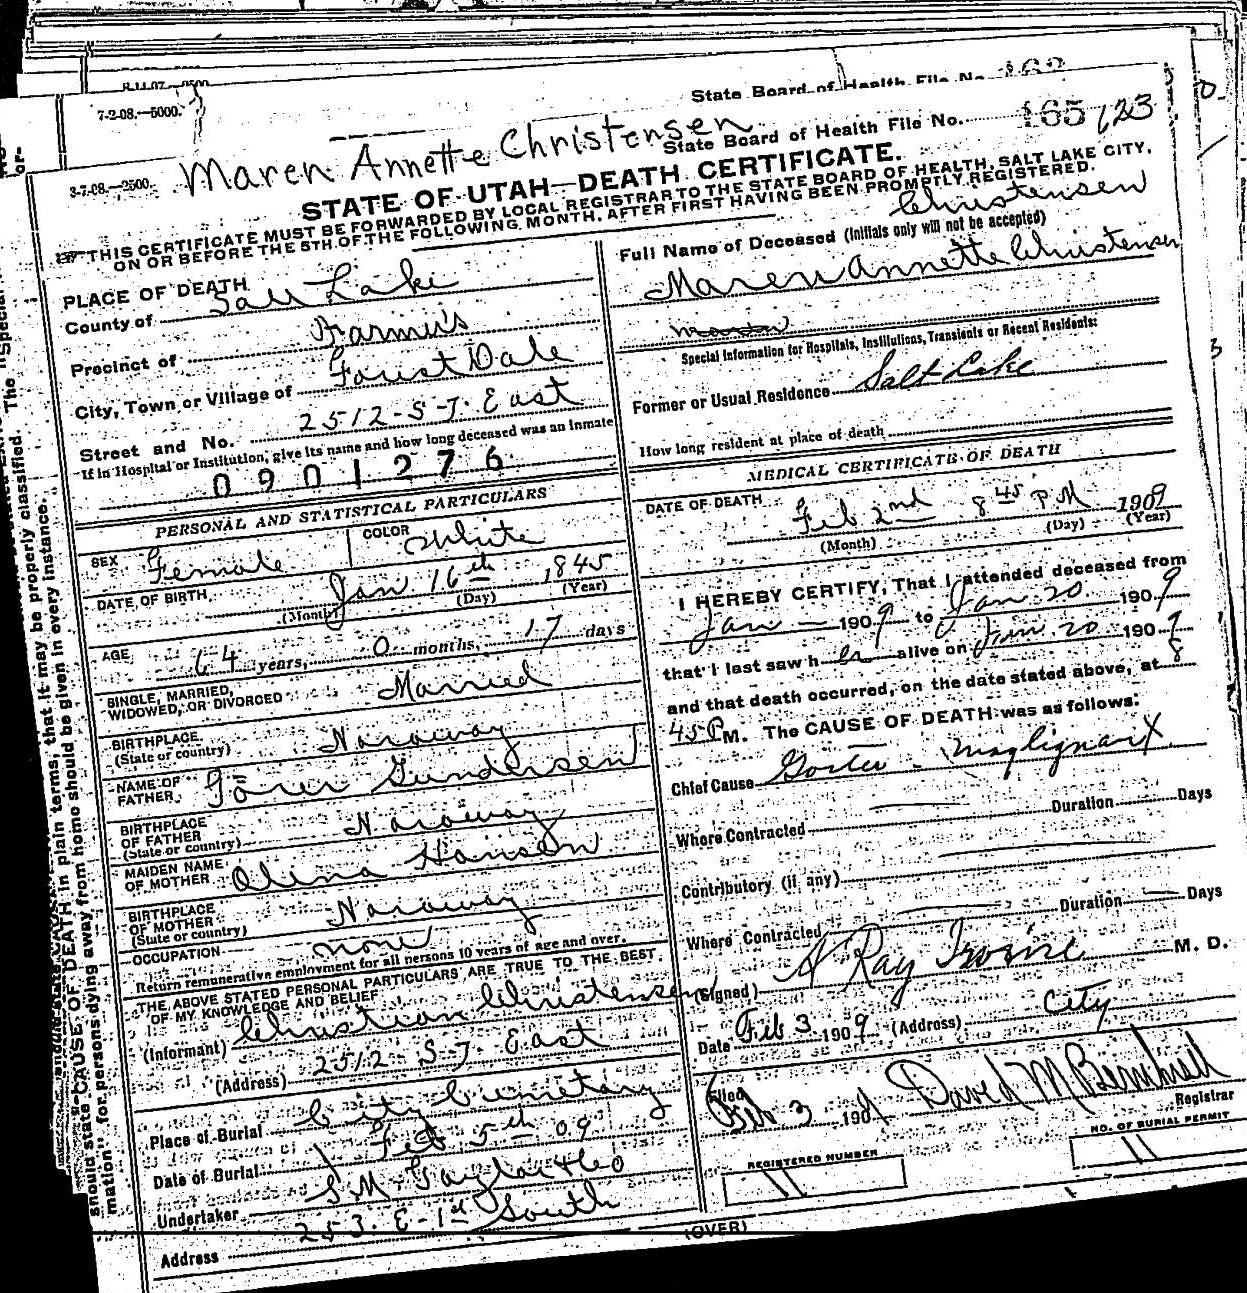 8-11-07.—2500
7-2-08.—5000.
State Board of Health File No. 162
State Board of Health File No. 165 123
3-7-08.—2500.
Maren Annette Christensen
STATE OF UTAH—DEATH CERTIFICATE.
THIS CERTIFICATE MUST BE FORWARDED BY LOCAL REGISTRAR TO THE STATE BOARD OF HEALTH, SALT LAKE CITY,
ON OR BEFORE THE 5TH OF THE FOLLOWING MONTH, AFTER FIRST HAVING BEEN PROMPTLY REGISTERED.
PLACE OF DEATH
County of Salt Lake
Precinct of Farmers
City, Town or Village of Forest Dale
Street and No. 2512-S-7. East
If in Hospital or Institution, give its name and how long deceased was an Inmate
0901276
PERSONAL AND STATISTICAL PARTICULARS
SEX Female COLOR White
DATE OF BIRTH Jan 16th 1845
(Month) (Day) (Year)
AGE 64 years, 0 months, 17 days
SINGLE, MARRIED,
WIDOWED, OR DIVORCED Married
BIRTHPLACE
(State or country) Noraway
NAME OF
FATHER Görer Gundersen
BIRTHPLACE
OF FATHER
(State or country) Noraway
MAIDEN NAME
OF MOTHER Olina Hansen
BIRTHPLACE
OF MOTHER
(State or country) Noraway
OCCUPATION none
Return remunerative employment for all persons 10 years of age and over.
THE ABOVE STATED PERSONAL PARTICULARS ARE TRUE TO THE BEST
OF MY KNOWLEDGE AND BELIEF
(Informant) Christian Christensen
(Address) 2512 S 7. East
Place of Burial City Cemetary
Date of Burial Feb 5th 09
Undertaker S.M. Taylor & Co
Address 253. E-1st South
Christensen
Full Name of Deceased (Initials only will not be accepted)
Maren Annette Christensen
Special Information for Hospitals, Institutions, Transients or Recent Residents:
Former or Usual Residence Salt Lake
How long resident at place of death
MEDICAL CERTIFICATE OF DEATH
DATE OF DEATH Feb 2nd 8 45 PM 1909
(Month) (Day) (Year)
I HEREBY CERTIFY, That I attended deceased from
Jan — 1909 to Jan 20 1909
that I last saw her alive on Jan 20 1909
and that death occurred, on the date stated above, at 8
45 P M. The CAUSE OF DEATH was as follows:
Chief Cause Goiter - Malignant
Duration Days
Where Contracted
Contributory (if any)
Duration Days
Where Contracted
(Signed) A Ray Irvine M. D.
Date Feb 3 1909 (Address) City
Filed Feb 3 1909 David M Registrar
REGISTERED NUMBER 11
NO. OF BURIAL PERMIT 11
(OVER)
should state CAUSE OF DEATH in plain terms, that it may be properly classified. The "Special
mation" for persons dying away from home should be given in every instance.